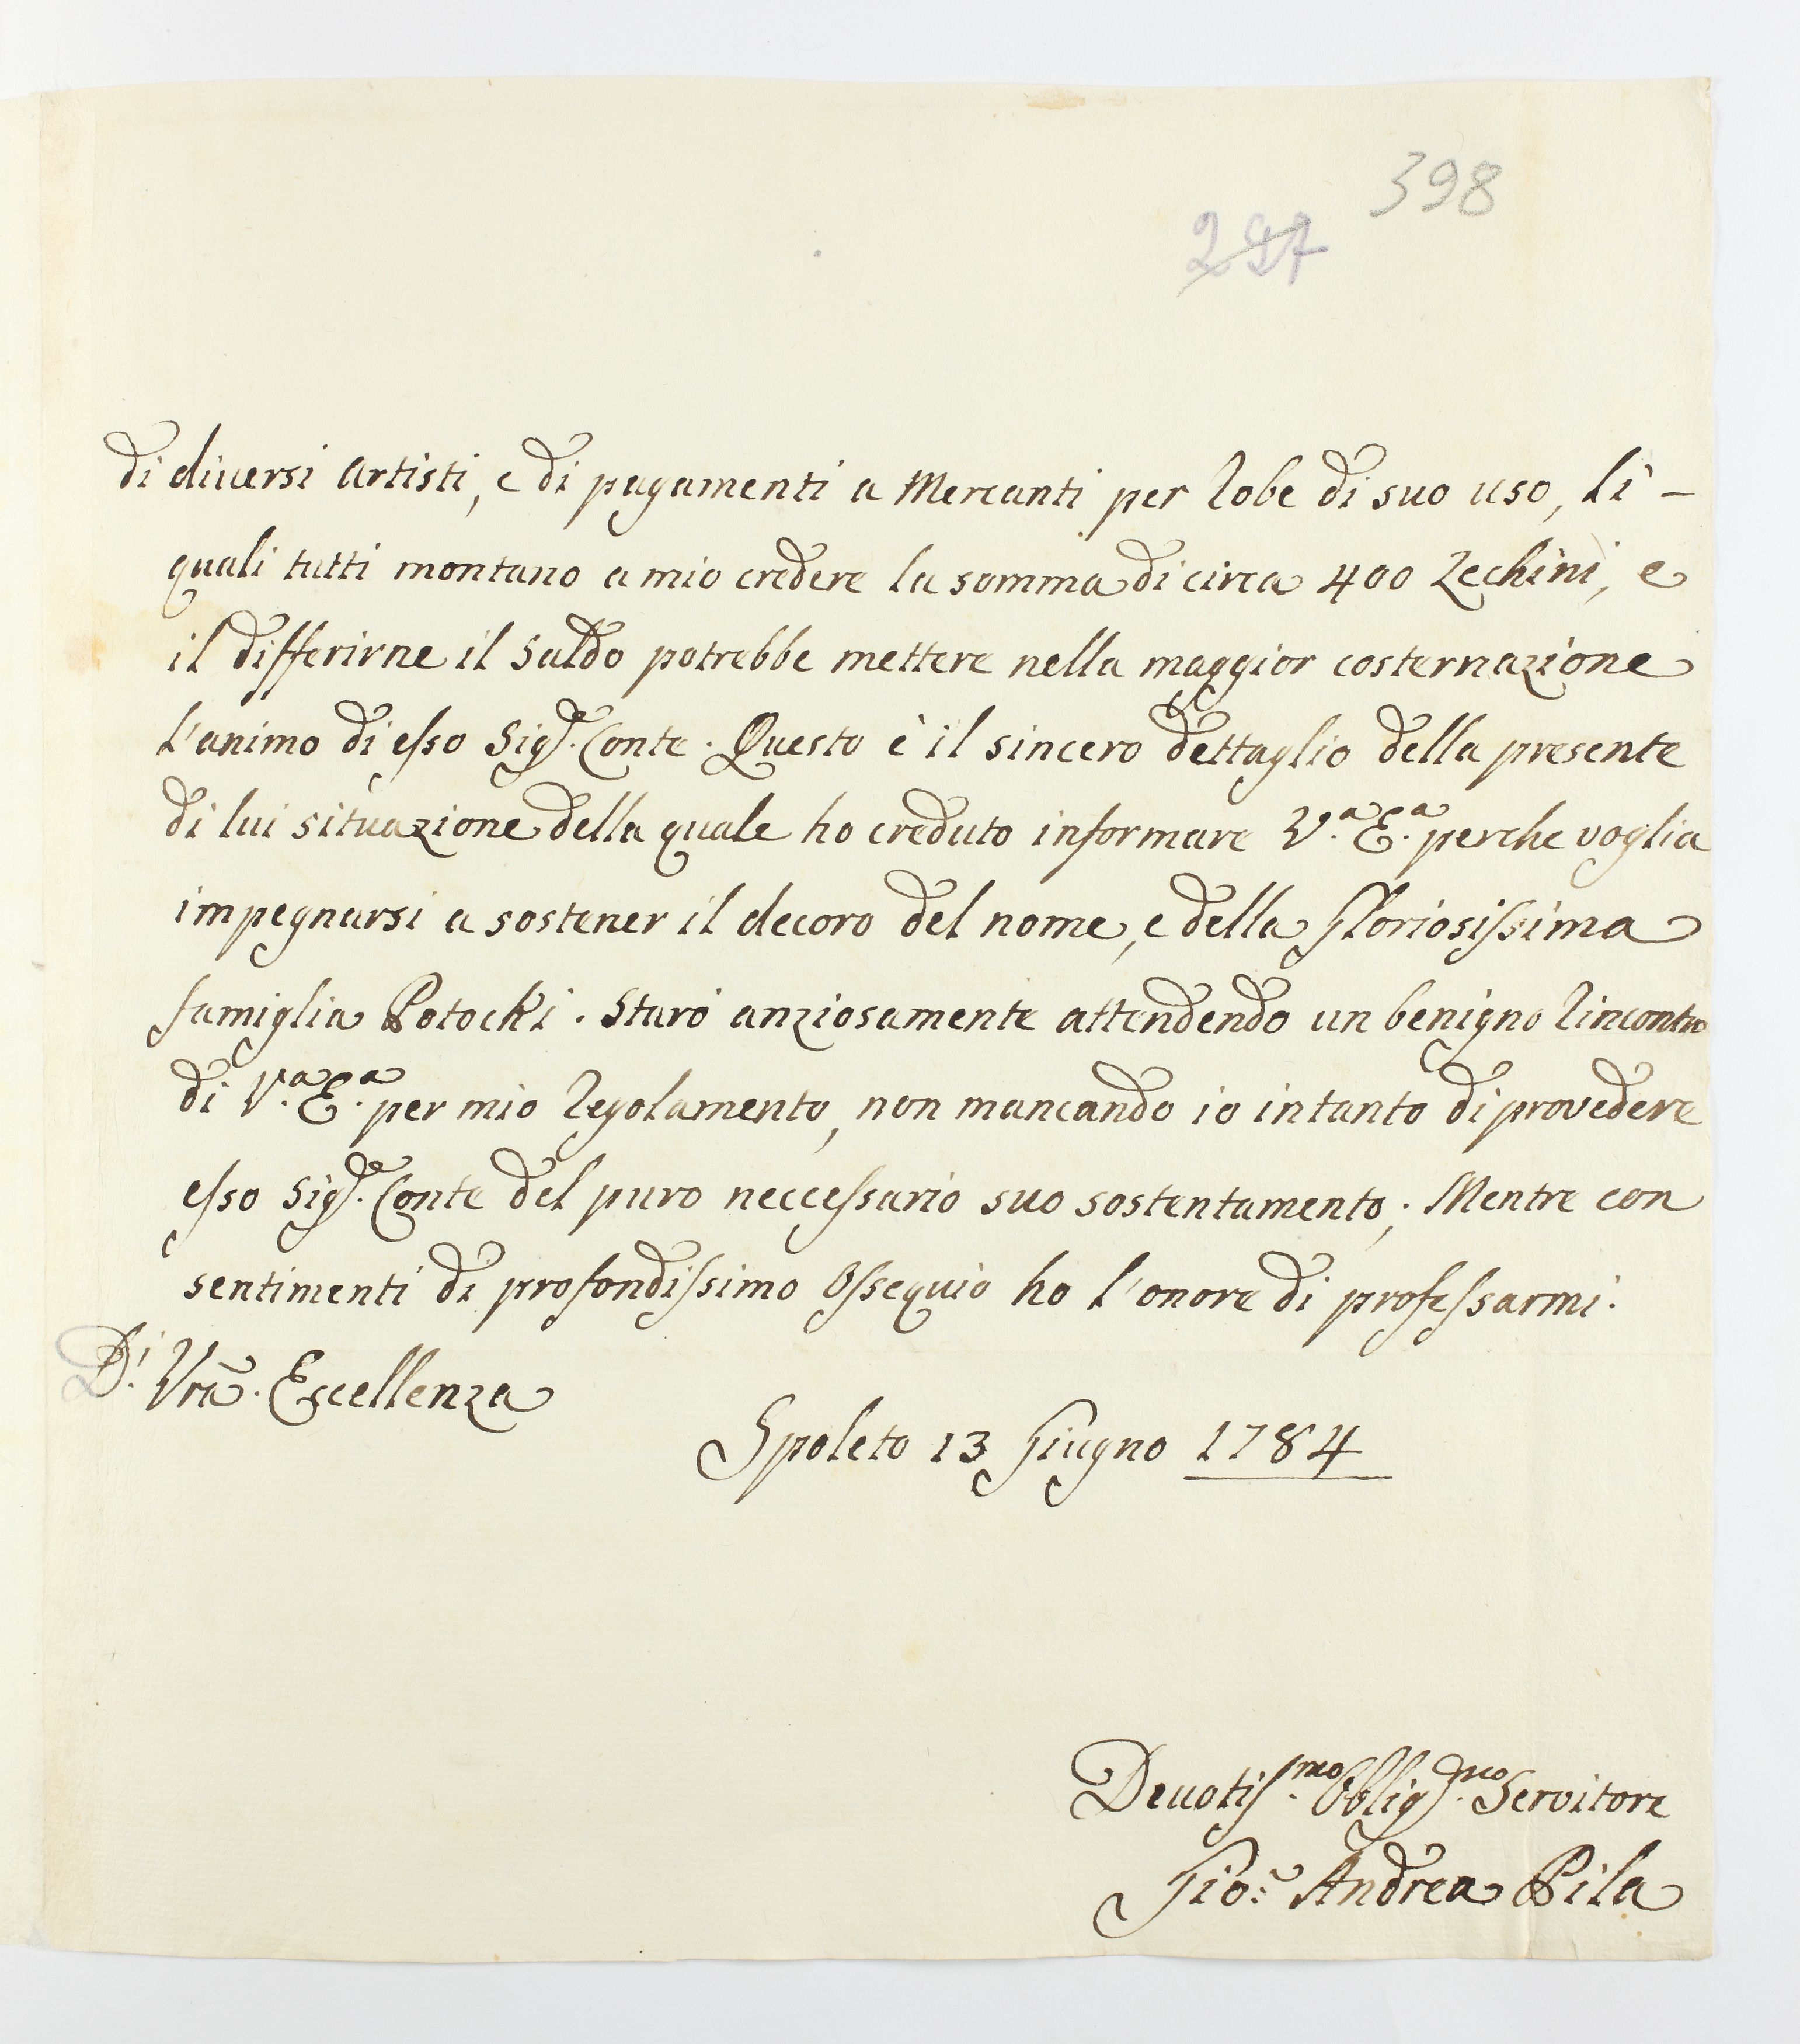 398
297
di diuersi Artisti, e di pagamenti a Mercanti per Robe di suo uso, li -
quali tutti montano a mio credere la somma di circa 400 Zechini, e
il differirne il Saldo potrebbe mettere nella maggior costernazione
l'animo di esso Sig.e Conte. Questo è il sincero dettaglio della presente
di lui situazione della quale ho creduto informare V.a E.a perche voglia
impegnarsi a sostener il decoro del nome, e della Gloriosissima
famiglia Potocki. Starò anziosamente attendendo un benigno Rincontro
di V.a E.a per mio Regolamento, non mancando io intanto di provedere
esso Sig.e Conte del puro neccessario suo sostentamento; Mentre con
sentimenti di profondissimo Ossequio ho l'onore di professarmi.
Di Vra. Eccellenza
Spoleto 13 Giugno 1784
Deuotis.mo Obblig.mo Servitore
Gio: Andrea Pila